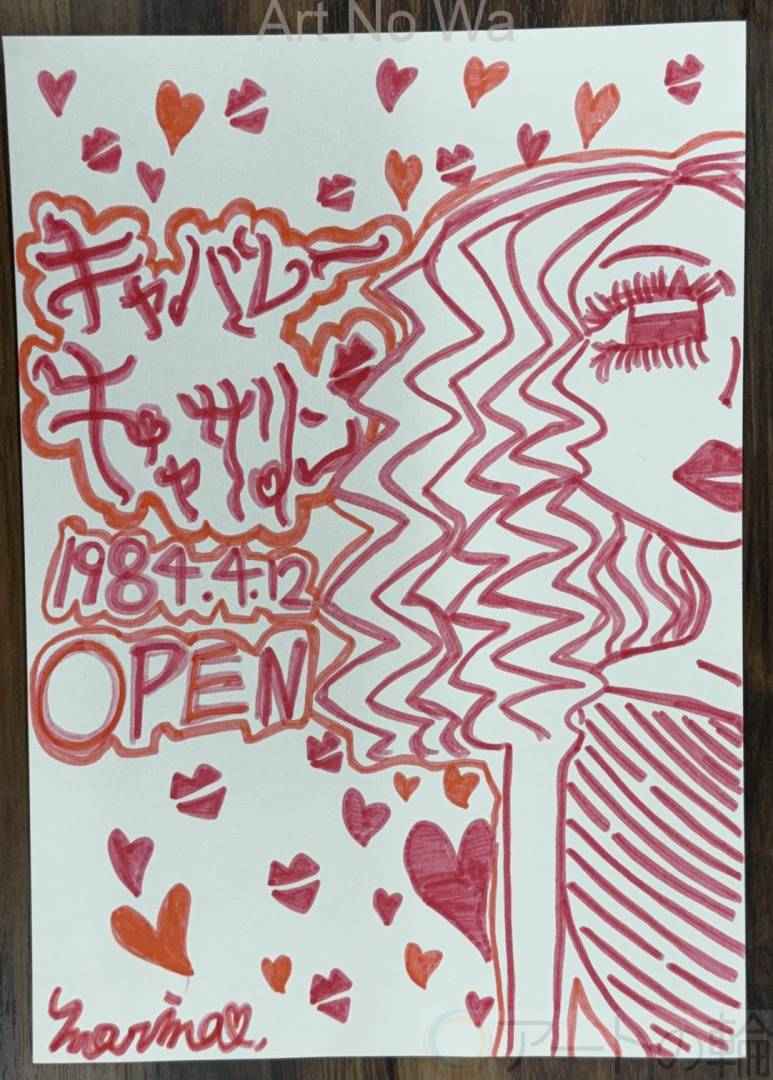 Art No Wa
キャバレー
キャサリン
1984.4.12
OPEN
marina
アートの輪